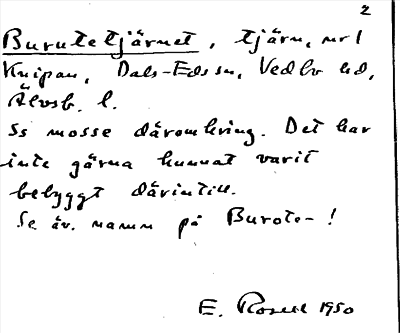 2
Burutetjärnet, tjärn, nr 1
Knipan, Dals-Eds sn, Vedbo hd,
Älvsb. l.
Ss mosse däromkring. Det har
inte gärna kunnat varit
bebyggt därintill.
Se äv. namn på Burote- !
E. Rosell 1950